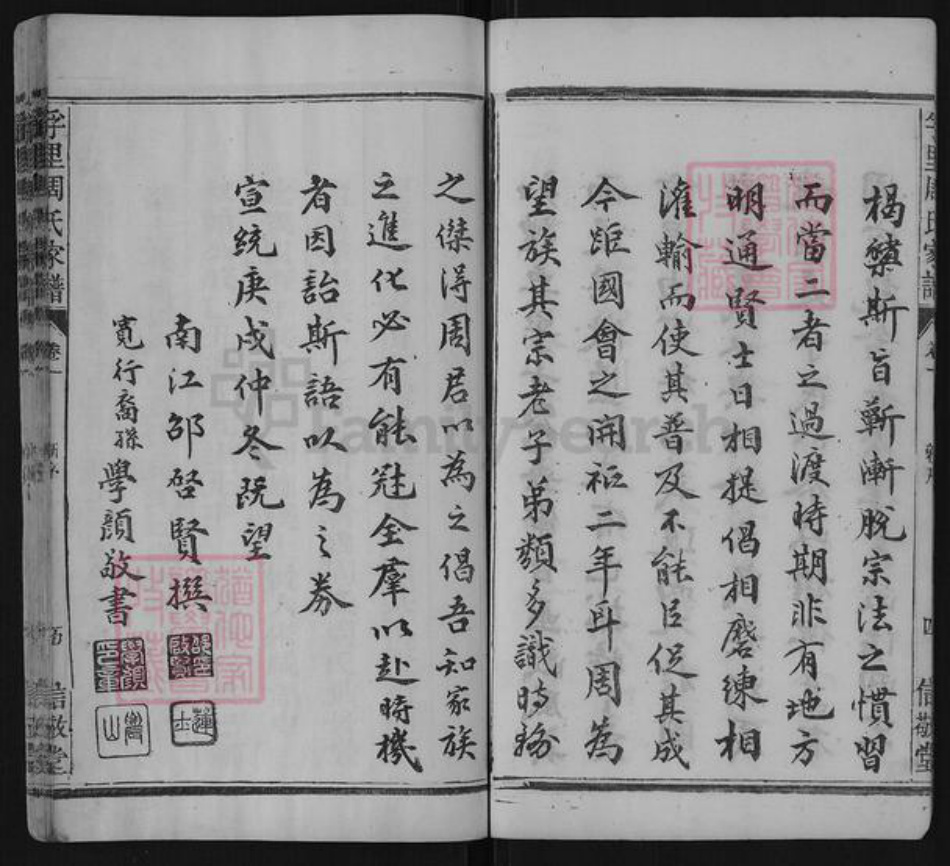 楬櫫斯旨蘄漸脫宗法之慣習
而當二者之過渡時期非有地方
明通賢士日相提倡相磨練相
灌輸而使其普及不能以促其成
今距國會之開祗二年耳周為
望族其宗老子弟類多識時務
之傑得周君以為之倡吾知家族
之進化必有能冠全羣以赴時機
者因詒斯語以為之券
宣統庚戌仲冬既望
南江邵啓賢撰
寬行裔孫學顏敬書
周氏家譜
卷一
信敬堂
FamilySearch